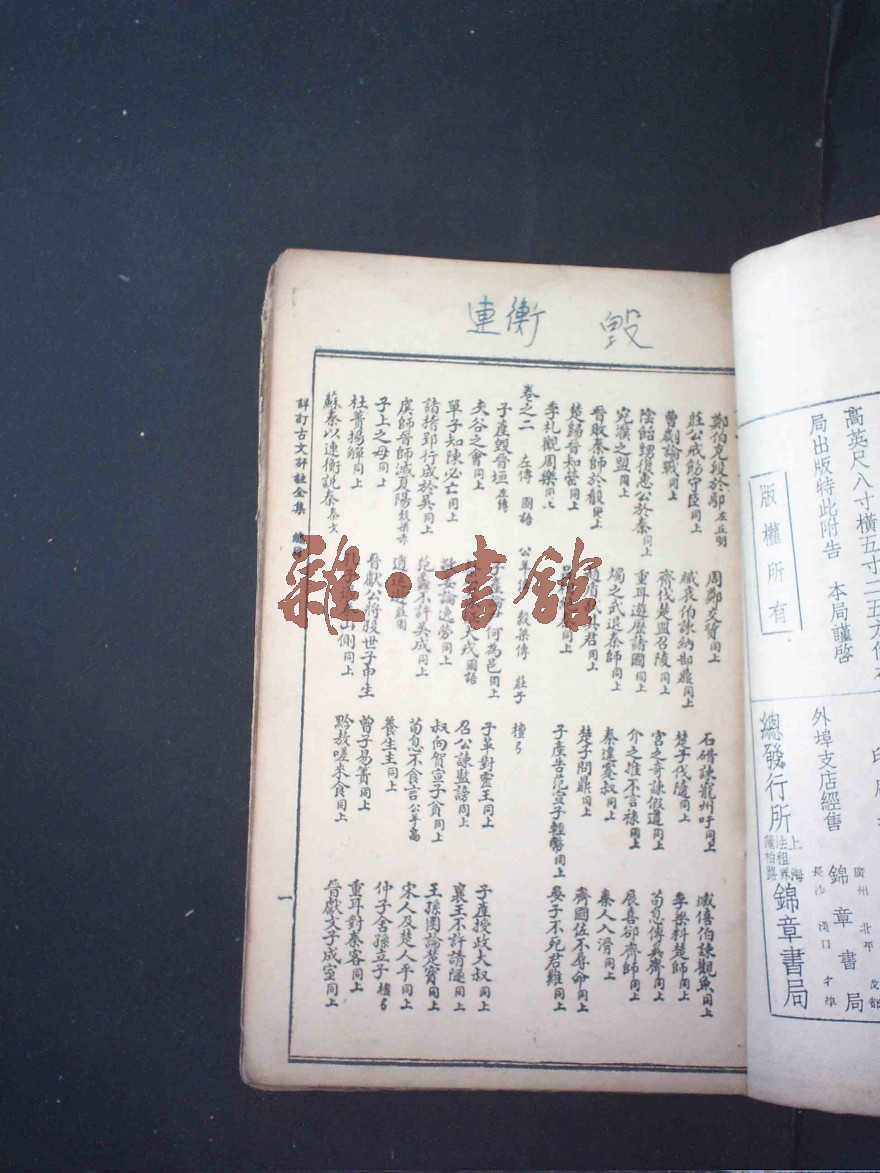 連衡 毀
鄭伯克段於鄢 左丘明 周鄭交質 同上 石碏諫寵州吁 同上 臧僖伯諫觀魚 同上
莊公戒飭守臣 同上 臧哀伯諫納郜鼎 同上 楚子伐隨 同上 季梁料楚師 同上
曹劌論戰 同上 齊伐楚盟召陵 同上 宮之奇諫假道 同上 荀息傅奚齊 同上
陰飴甥復惠公於秦 同上 重耳遊歷諸國 同上 介之推不言祿 同上 展喜卻齊師 同上
宛濮之盟 同上 燭之武退秦師 同上 秦違蹇叔 同上 秦人入滑 同上
晉敗秦師於殽 同上 其君 同上 楚子問鼎 同上 齊國佐不辱命 同上
楚歸晉知罃 同上 同上 子產告范宣子輕幣 同上 晏子不死君難 同上
季札觀周樂 同上
卷之二 左傳 國語 公羊 穀梁傳 莊子 檀弓
子產毀晉垣 左傳 子產論 何為邑 同上 子革對靈王 同上 子產授政大叔 同上
夾谷之會 同上 犬戎 國語 召公諫監謗 同上 襄王不許請隧 同上
單子知陳必亡 同上 敬姜論逸勞 同上 叔向賀宣子貧 同上 王孫圉論楚寶 同上
諸稽郢行成於吳 同上 范蠡不許吳成 同上 荀息不食言 公羊高 宋人及楚人平 同上
虞師晉師滅夏陽 穀梁赤 逍遙遊 莊周 養生主 同上 仲子舍孫立子 檀弓
子上之母 同上 晉獻公將殺世子申生 曾子易簀 同上 重耳對秦客 同上
杜蕢揚觶 同上 孔子過 山側 同上 黔敖嗟來食 同上 晉獻文子成室 同上
蘇秦以連衡說秦
詳訂古文評註全集 總目
一
高英尺八寸橫五寸二五
局出版特此附告 本局謹啓
版權所有
外埠支店經售
廣州 北平
長沙 漢口
錦章書局
總發行所 上海法租界蒲柏路 錦章書局
雜·書館